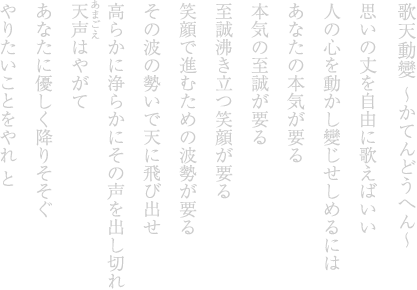 歌天動變 ～かてんどうへん～
思いの丈を自由に歌えばいい
人の心を動かし變じせしめるには
あなたの本気が要る
本気の至誠が要る
至誠沸き立つ笑顔が要る
笑顔で進むための波勢が要る
その波の勢いで天に飛び出せ
高らかに浄らかにその声を出し切れ
天声はやがて
あまごえ
あなたに優しく降りそそぐ
やりたいことをやれ と